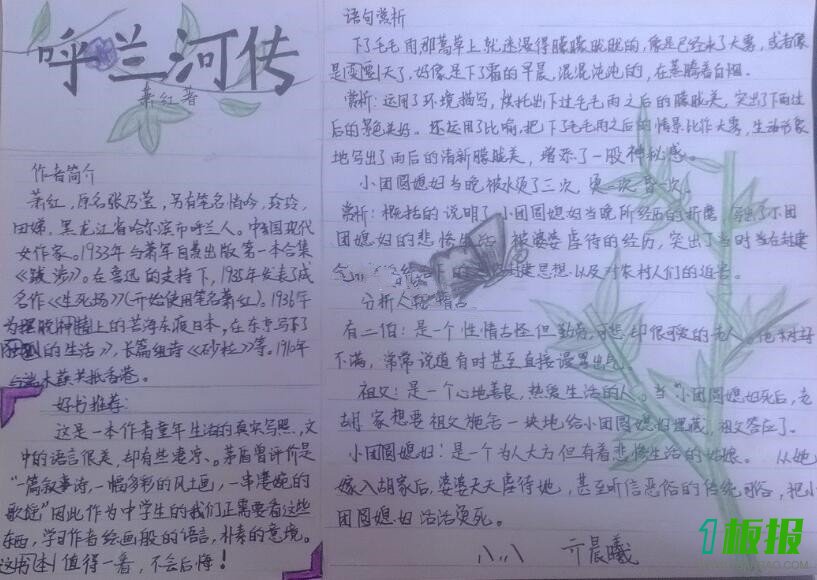 呼兰河传
萧红著
作者简介
萧红,原名张乃莹,另有笔名悄吟,玲玲,
田娣,黑龙江省哈尔滨市呼兰人。中国现代
女作家。1933年与萧军自费出版第一本合集
《跋涉》。在鲁迅的支持下,1935年发表了成
名作《生死场》(开始使用笔名萧红)。1936年
为摆脱精神上的苦海东渡日本,在东京写下了
的生活》,长篇组诗《砂粒》等。1940年
与端木蕻共抵香港。
好书推荐:
这是一本作者童年生活的真实写照,文
中的语言很美,却有些凄凉、。茅盾曾评价是
“一篇叙事诗,一幅多彩的风土画,一串凄婉的
歌谣”因此作为中学生的我们正需要看这些
东西,学习作者绘画般的语言,朴素的意境。
这书本值得一看,不会后悔!
语句赏析
下了毛毛雨那蒿草上就迷漫得朦朦胧胧的,像是已经来了大雾,或者像
是要变天了,好像是下了霜的早晨,混混沌沌的,在蒸腾着白烟。
赏析:运用了环境描写,烘托出下过毛毛雨之后的朦胧美,突出了下雨过
后的景色美好。还运用了比喻,把下了毛毛雨之后的情景比作大雾,生动形象
地写出了雨后的清新朦胧美,增添了一股神秘感。
小团圆媳妇当晚被水烫了三次,烫一次,昏一次。
赏析:概括的说明了小团圆媳妇当晚所经历的折磨,写出了小团
圆媳妇的悲惨生活,被婆婆虐待的经历,突出了当时当在封建
下的封建思想以及对农村人们的迫害。
分析人物
有二伯:是一个性情古怪但勤劳,可悲却很可爱的老人。他对
不满,常常说道有时甚至直接谩骂出
祖父:是一个心地善良,热爱生活的人。当“小团圆媳妇死后,老
胡家想要祖父施舍一块地给小团圆媳妇埋藏,祖父答应了。
小团圆媳妇:是一个为人大方但有着悲惨生活的姑娘。从她
嫁入胡家后,婆婆天天虐待她,甚至听信恶俗的传统,把小
团圆媳妇活活烫死。
八.八 亓晨曦
1板报